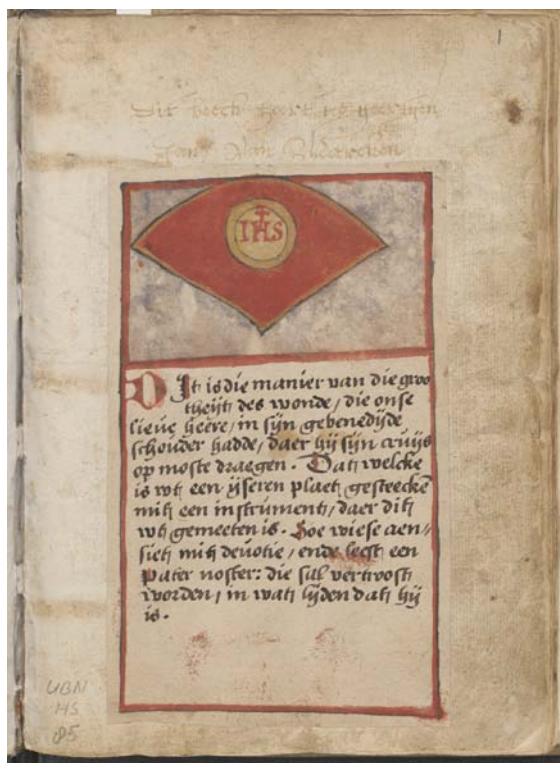 1
Dit boeck hoert
Jans van
IHS
DIt is die manier van die groo
theijt des wonde / die onse
lieve heere / in sijn gebenedijde
schouder hadde / daer hij sijn cruijs
op moste draegen. Dat welcke
is wt een ijseren plaet gesteecke̅
mit een instrument / daer dit
wt gemeeten is. Soe wiese aen〃
siet mit devotie / ende leest een
pater noster: die sal vertroost
worden / in wat lijden dat hij
is.
UBN
HS
85